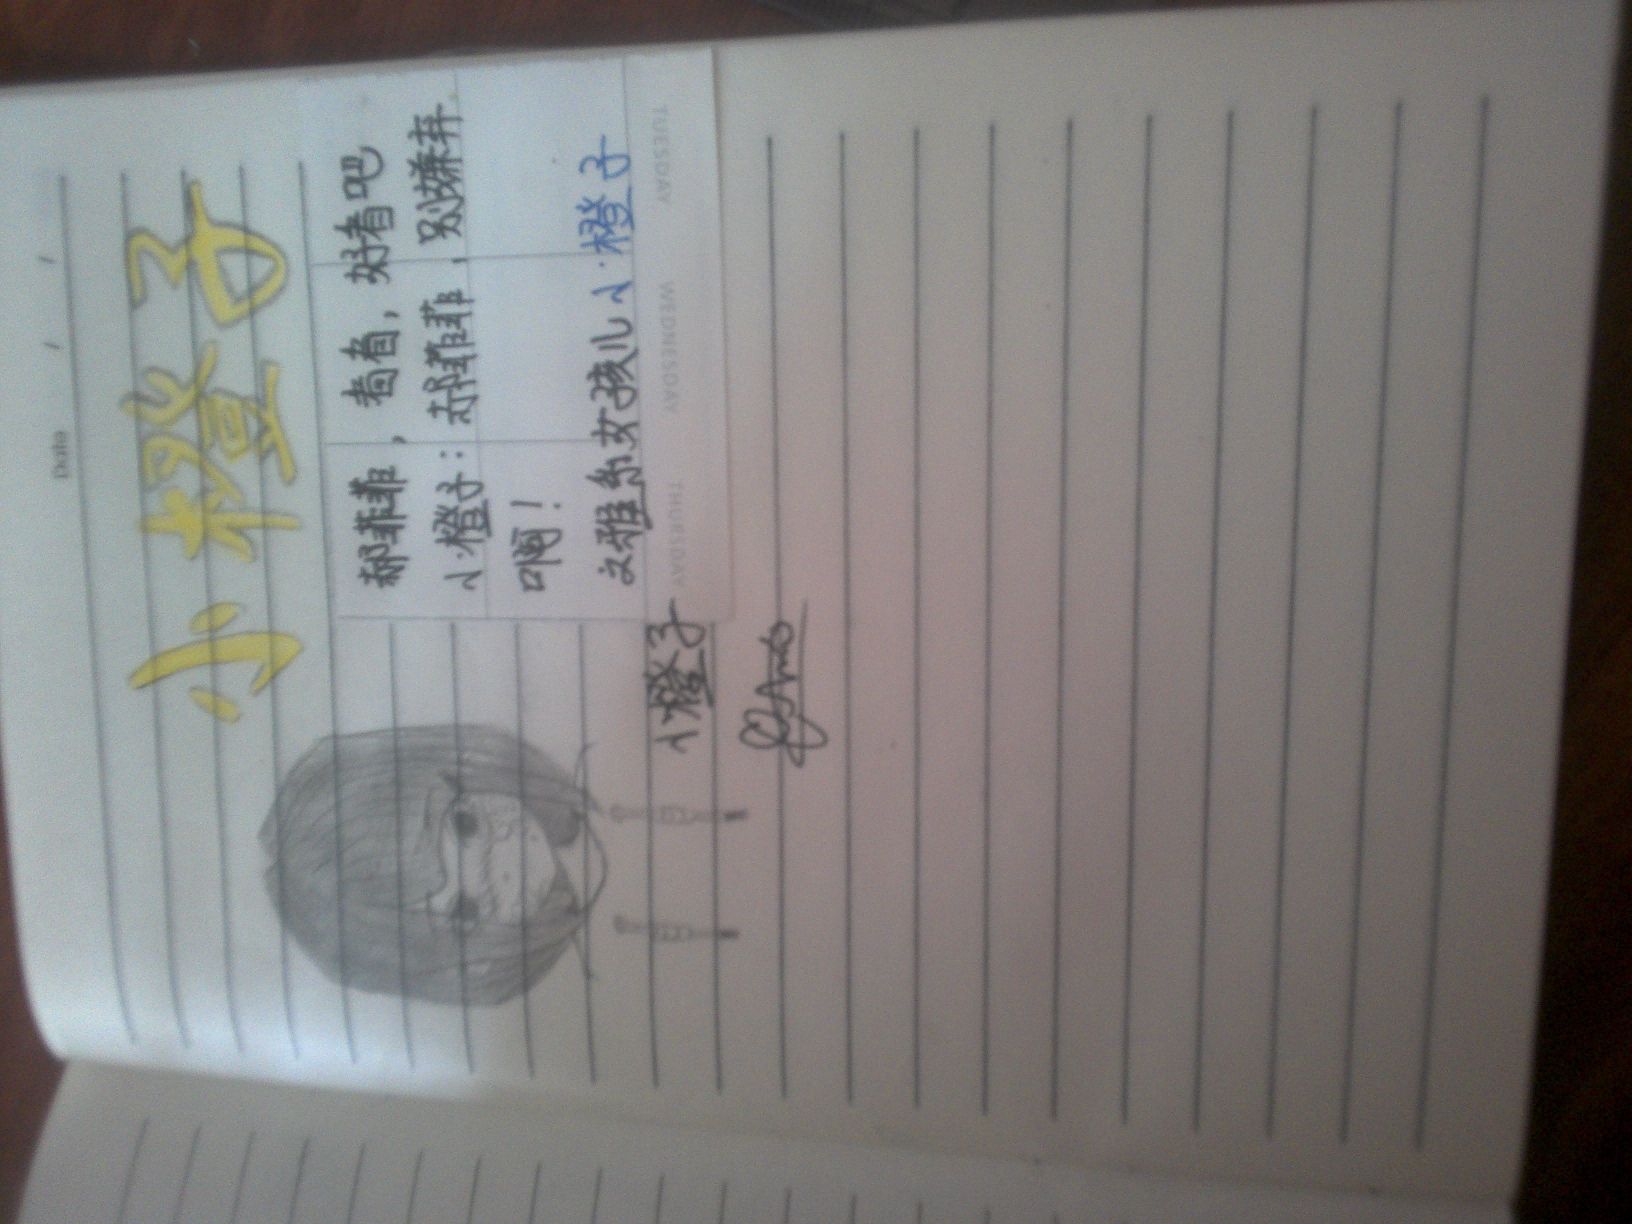 Date / /
小橙子
郝菲菲，看看，好看吧
小橙子：郝菲菲，别嫌弃
啊！
文雅系女孩儿小橙子
TUESDAY WEDNESDAY THURSDAY
小橙子